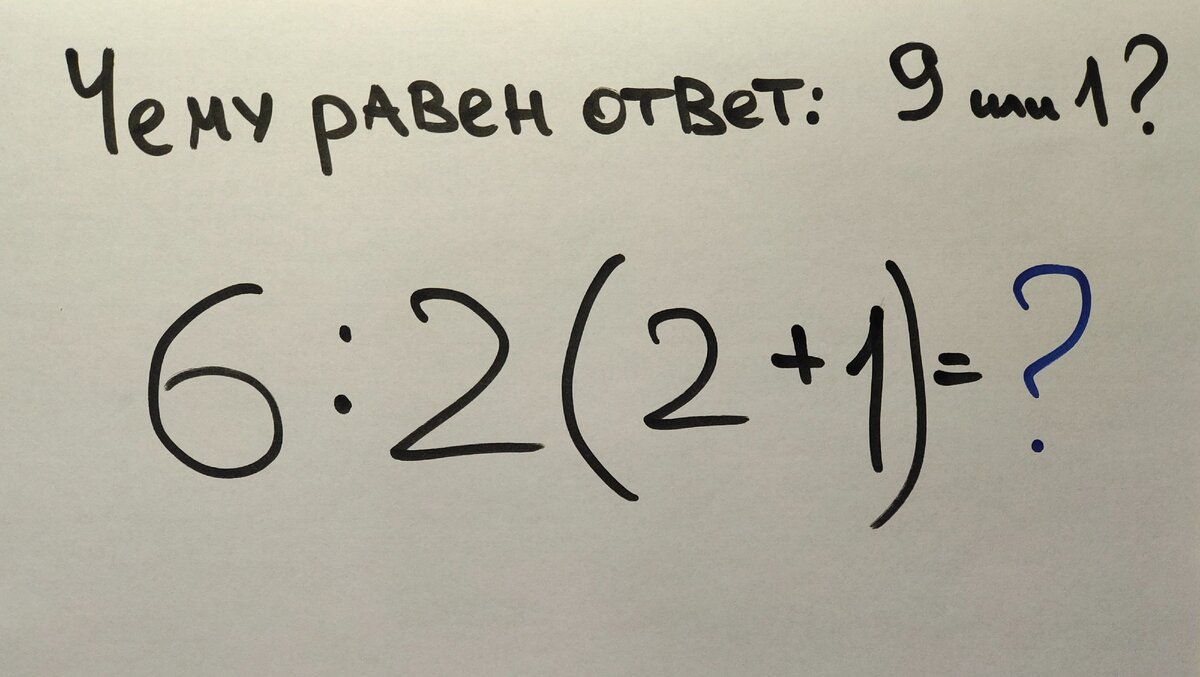 Чему равен ответ: 9 или 1?
6:2(2+1)=?